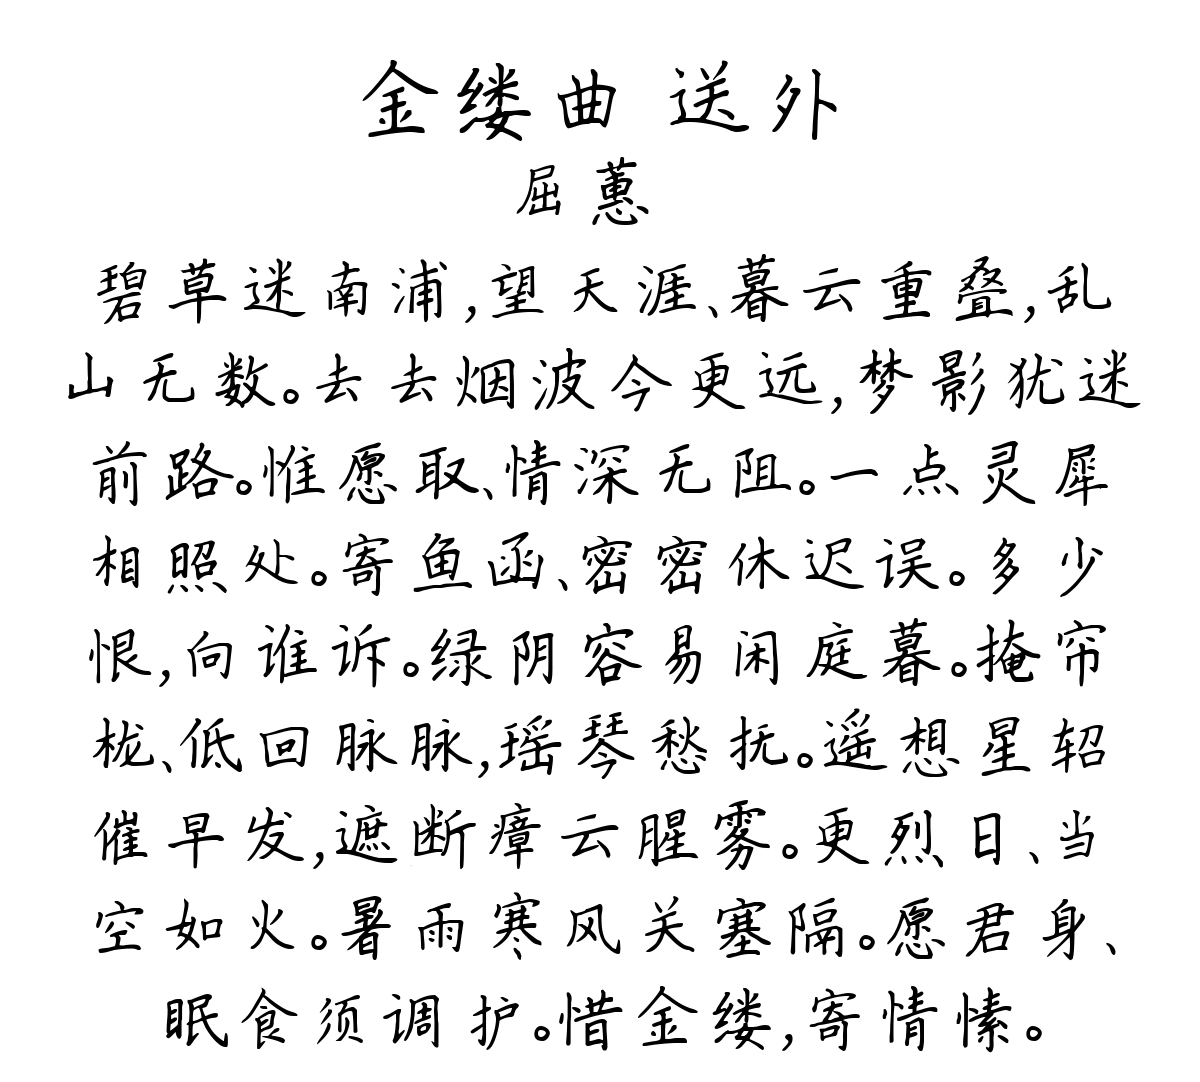 金缕曲 送外
屈蕙
碧草迷南浦,望天涯、暮云重叠,乱
山无数。去去烟波今更远,梦影犹迷
前路。惟愿取、情深无阻。一点灵犀
相照处。寄鱼函、密密休迟误。多少
恨,向谁诉。绿阴容易闲庭暮。掩帘
栊、低回脉脉,瑶琴愁抚。遥想星轺
催早发,遮断瘴云腥雾。更烈日、当
空如火。暑雨寒风关塞隔。愿君身、
眠食须调护。惜金缕,寄情愫。